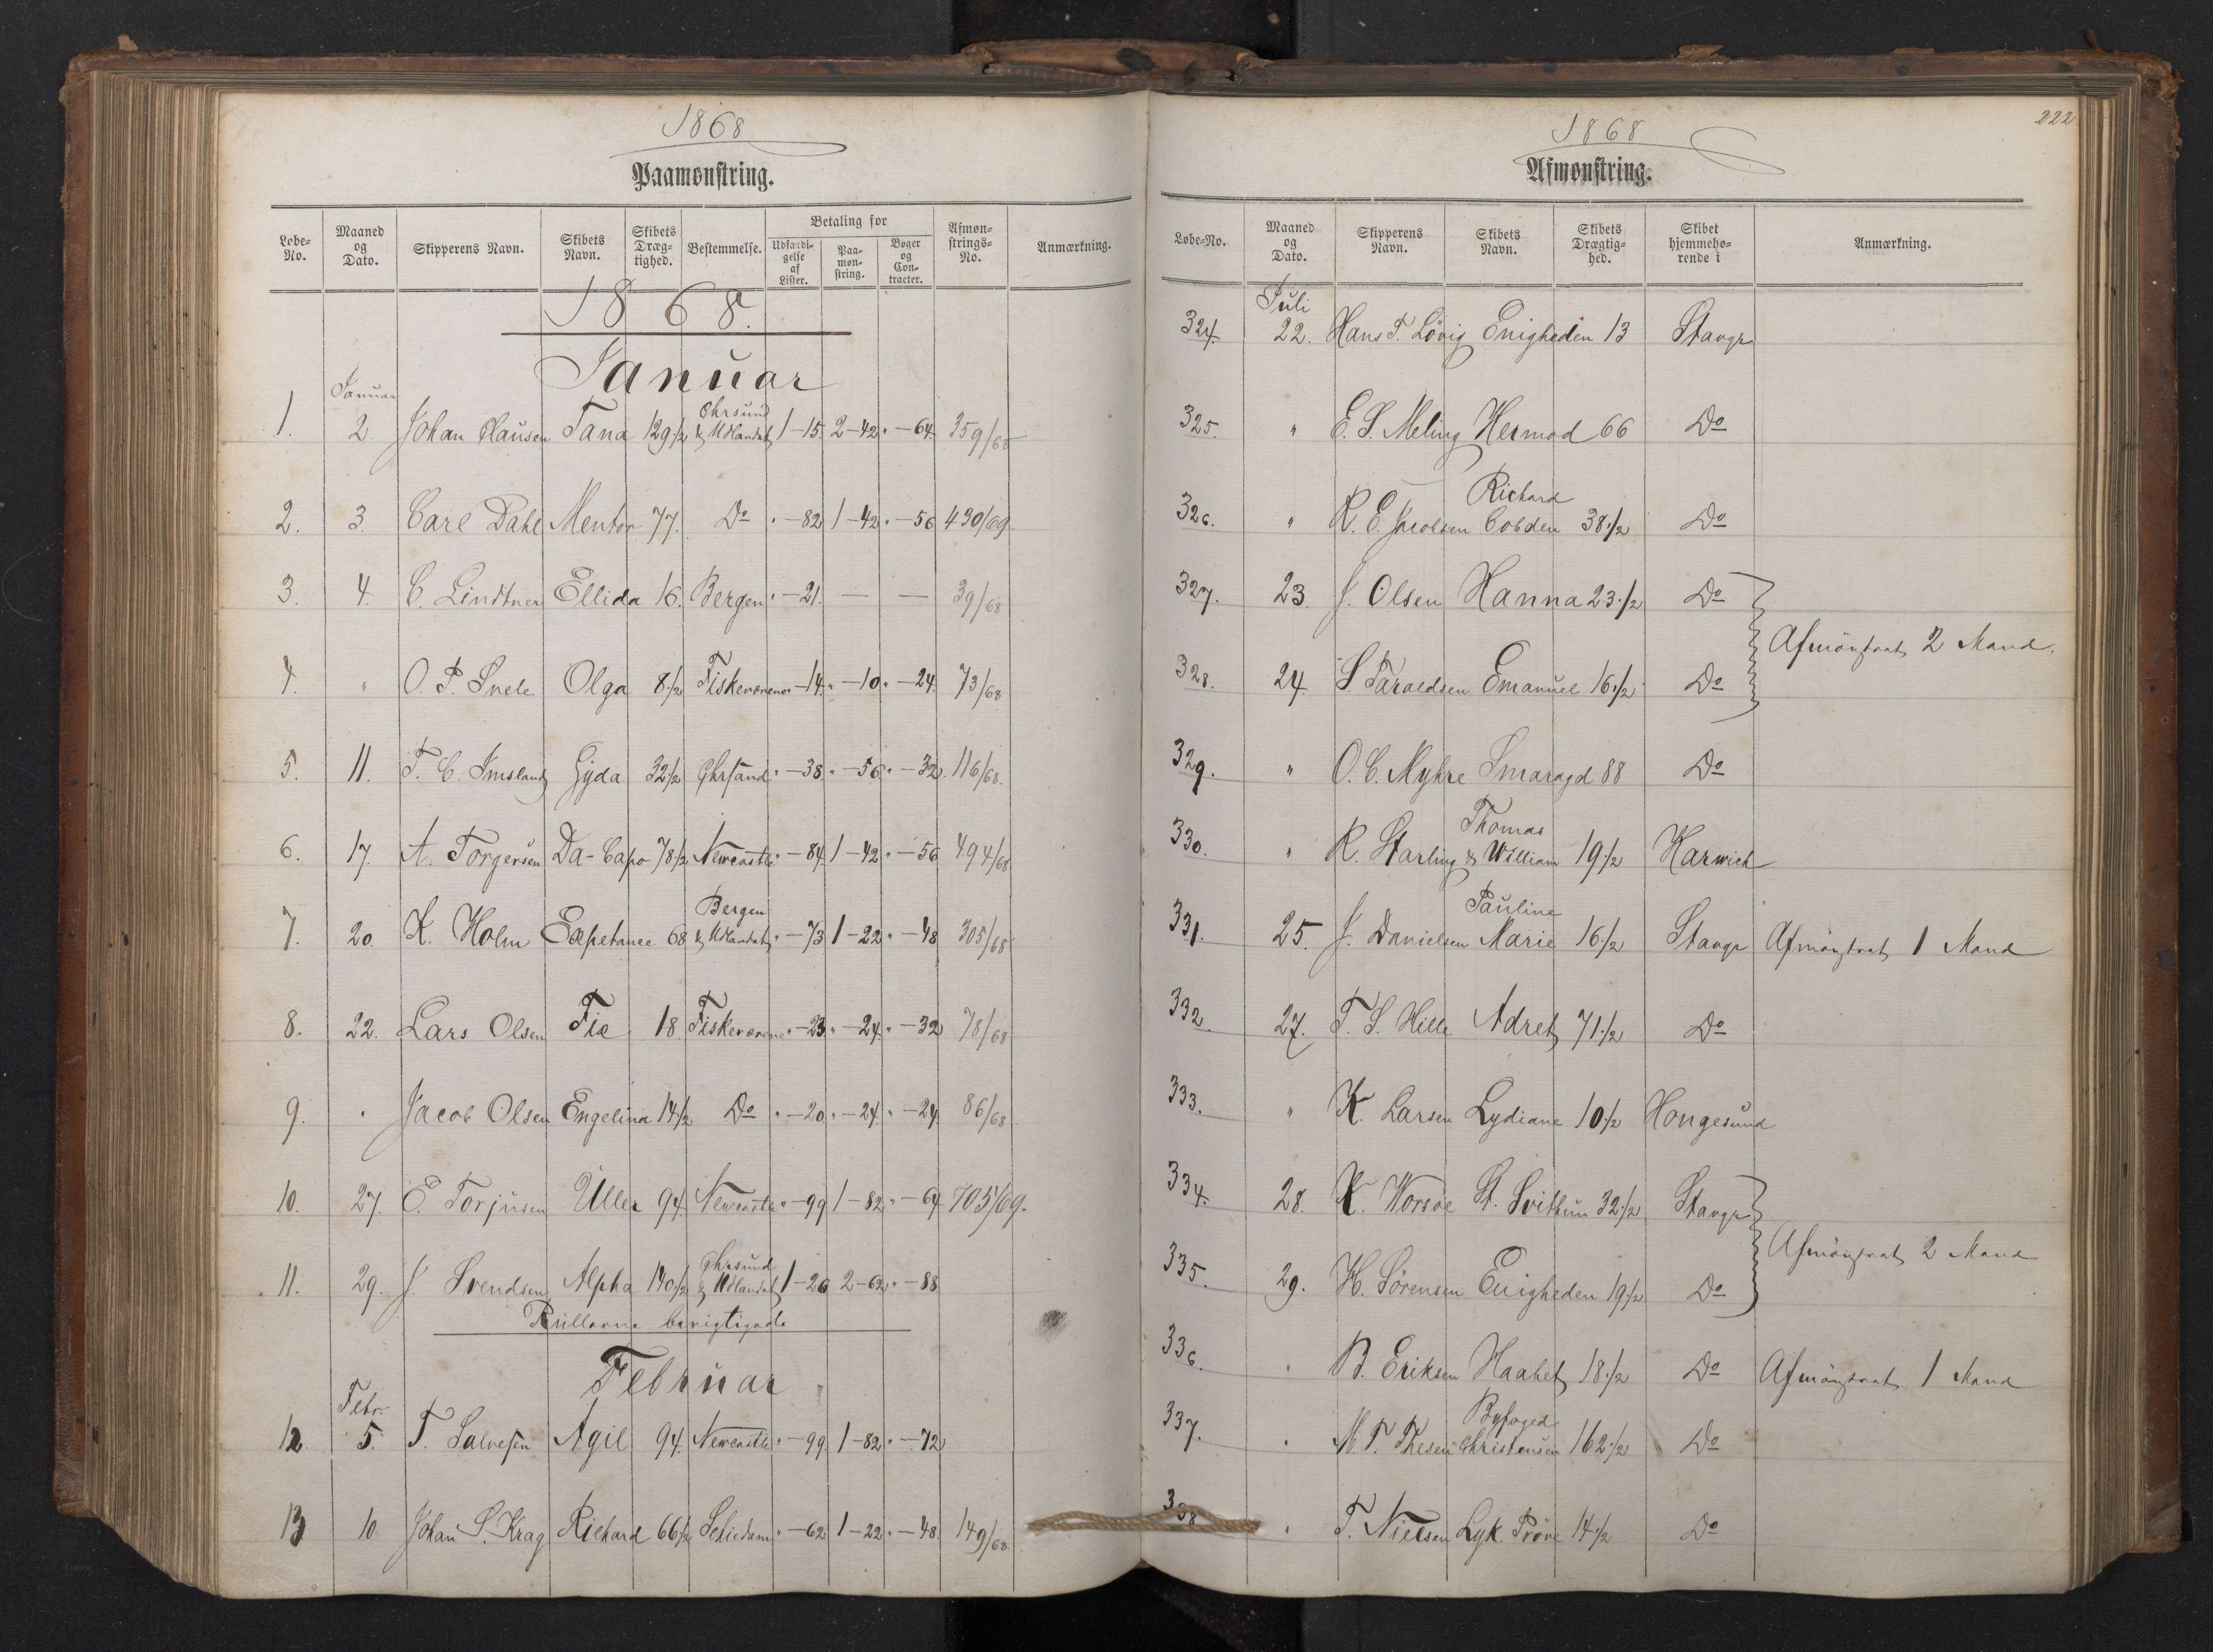 1868
Paamønstring.
Løbe-No. Maaned og Dato. Skipperens Navn. Skibets Navn. Skibets Dræg-tighed. Bestemmelse. Betaling for Udfærdi-gelse af Lister. Paa-møn-string. Bøger og Con-tracter. Afmøn-strings-No. Anmærkning.
1868.
Januar
Januar
1. 2. Johan Clausen Tana 129 1/2 Chrsund & Udlandet 1-15. 2-42 " -64. 359/68
2. 3. Carl Dahl Mentor 77. Do " -82 1-42 " -56 430/69
3. 4. C. Lindtner Ellida 16. Bergen " -21. — — 39/68
4. " O. P. Svele Olga 8 1/2 Fiskeværene " -14. " -10 " -24. 73/68
5. 11. T. C. Imsland Gyda 32 1/2 Chrsand " -38 " -56 " -32. 116/68.
6. 17. A. Torgersen Da-Capo 78 1/2 Newcastle " -84. 1-42 " -56 494/68
7. 20. K. Holm Esperance 68 Bergen & Udlandet " -73 1-22 " -48 305/68
8. 22. Lars Olsen Fie 18. Fiskeværene " -23 " -24. " -32 78/68
9. " Jacob Olsen Engelina 14 1/2 Do " -20 " -24. " -24. 86/68
10. 27. E. Torjusen Uller 94. Newcastle " -99 1-82 " -64 705/69.
11. 29. J. Svendsen Alpha 140 1/2 Chrsund & Udlandet 1-26 2-62 " -88
Rullerne berigtigede
Februar
Febr.
12. 5. T. Salvesen Agil 94. Newcastle " -99 1-82 " -72
13 10 Johan S. Krag Richard 66 1/2 Schiedam " -62 1-22 " -48. 149/68.
222
1868
Afmønstring.
Løbe-No. Maaned og Dato. Skipperens Navn. Skibets Navn. Skibets Drægtig-hed. Skibet hjemmehø-rende i Anmærkning.
Juli
324. 22. Hans T. Lövig Enigheden 13 Stavgr
325. " E. S. Meling Hermod 66 Do
326. " R. E. Jacobsen Richard Cobden 38 1/2 Do
327. 23. J. Olsen Hanna 23 1/2 Do
Afmönstret 2 Mand.
328. 24. S. Taraldsen Emanuel 16 1/2 Do
329. " O. C. Myhre Smaragd 88 Do
330. " R. Starling Thomas & William 19 1/2 Harwich
331. 25. J. Danielsen Pauline Marie 16 1/2 Stavgr Afmönstret 1 Mand
332. 27. T. S. Hille Adret 71 1/2 Do
333. " K. Larsen Lydiane 10 1/2 Hougesund
334. 28. K. Worsöe St. Svithun 32 1/2 Stavgr
Afmönstret 2 Mand
335. 29. H. Sörensen Enigheden 19 1/2 Do
336. " B. Eriksen Haabet 18 1/2 Do Afmönstret 1 Mand
337. " M. T. Thesen Byfoged Christensen 162 1/2 Do
338 " T. Nielsen Lyk. Pröve 14 1/2 Do